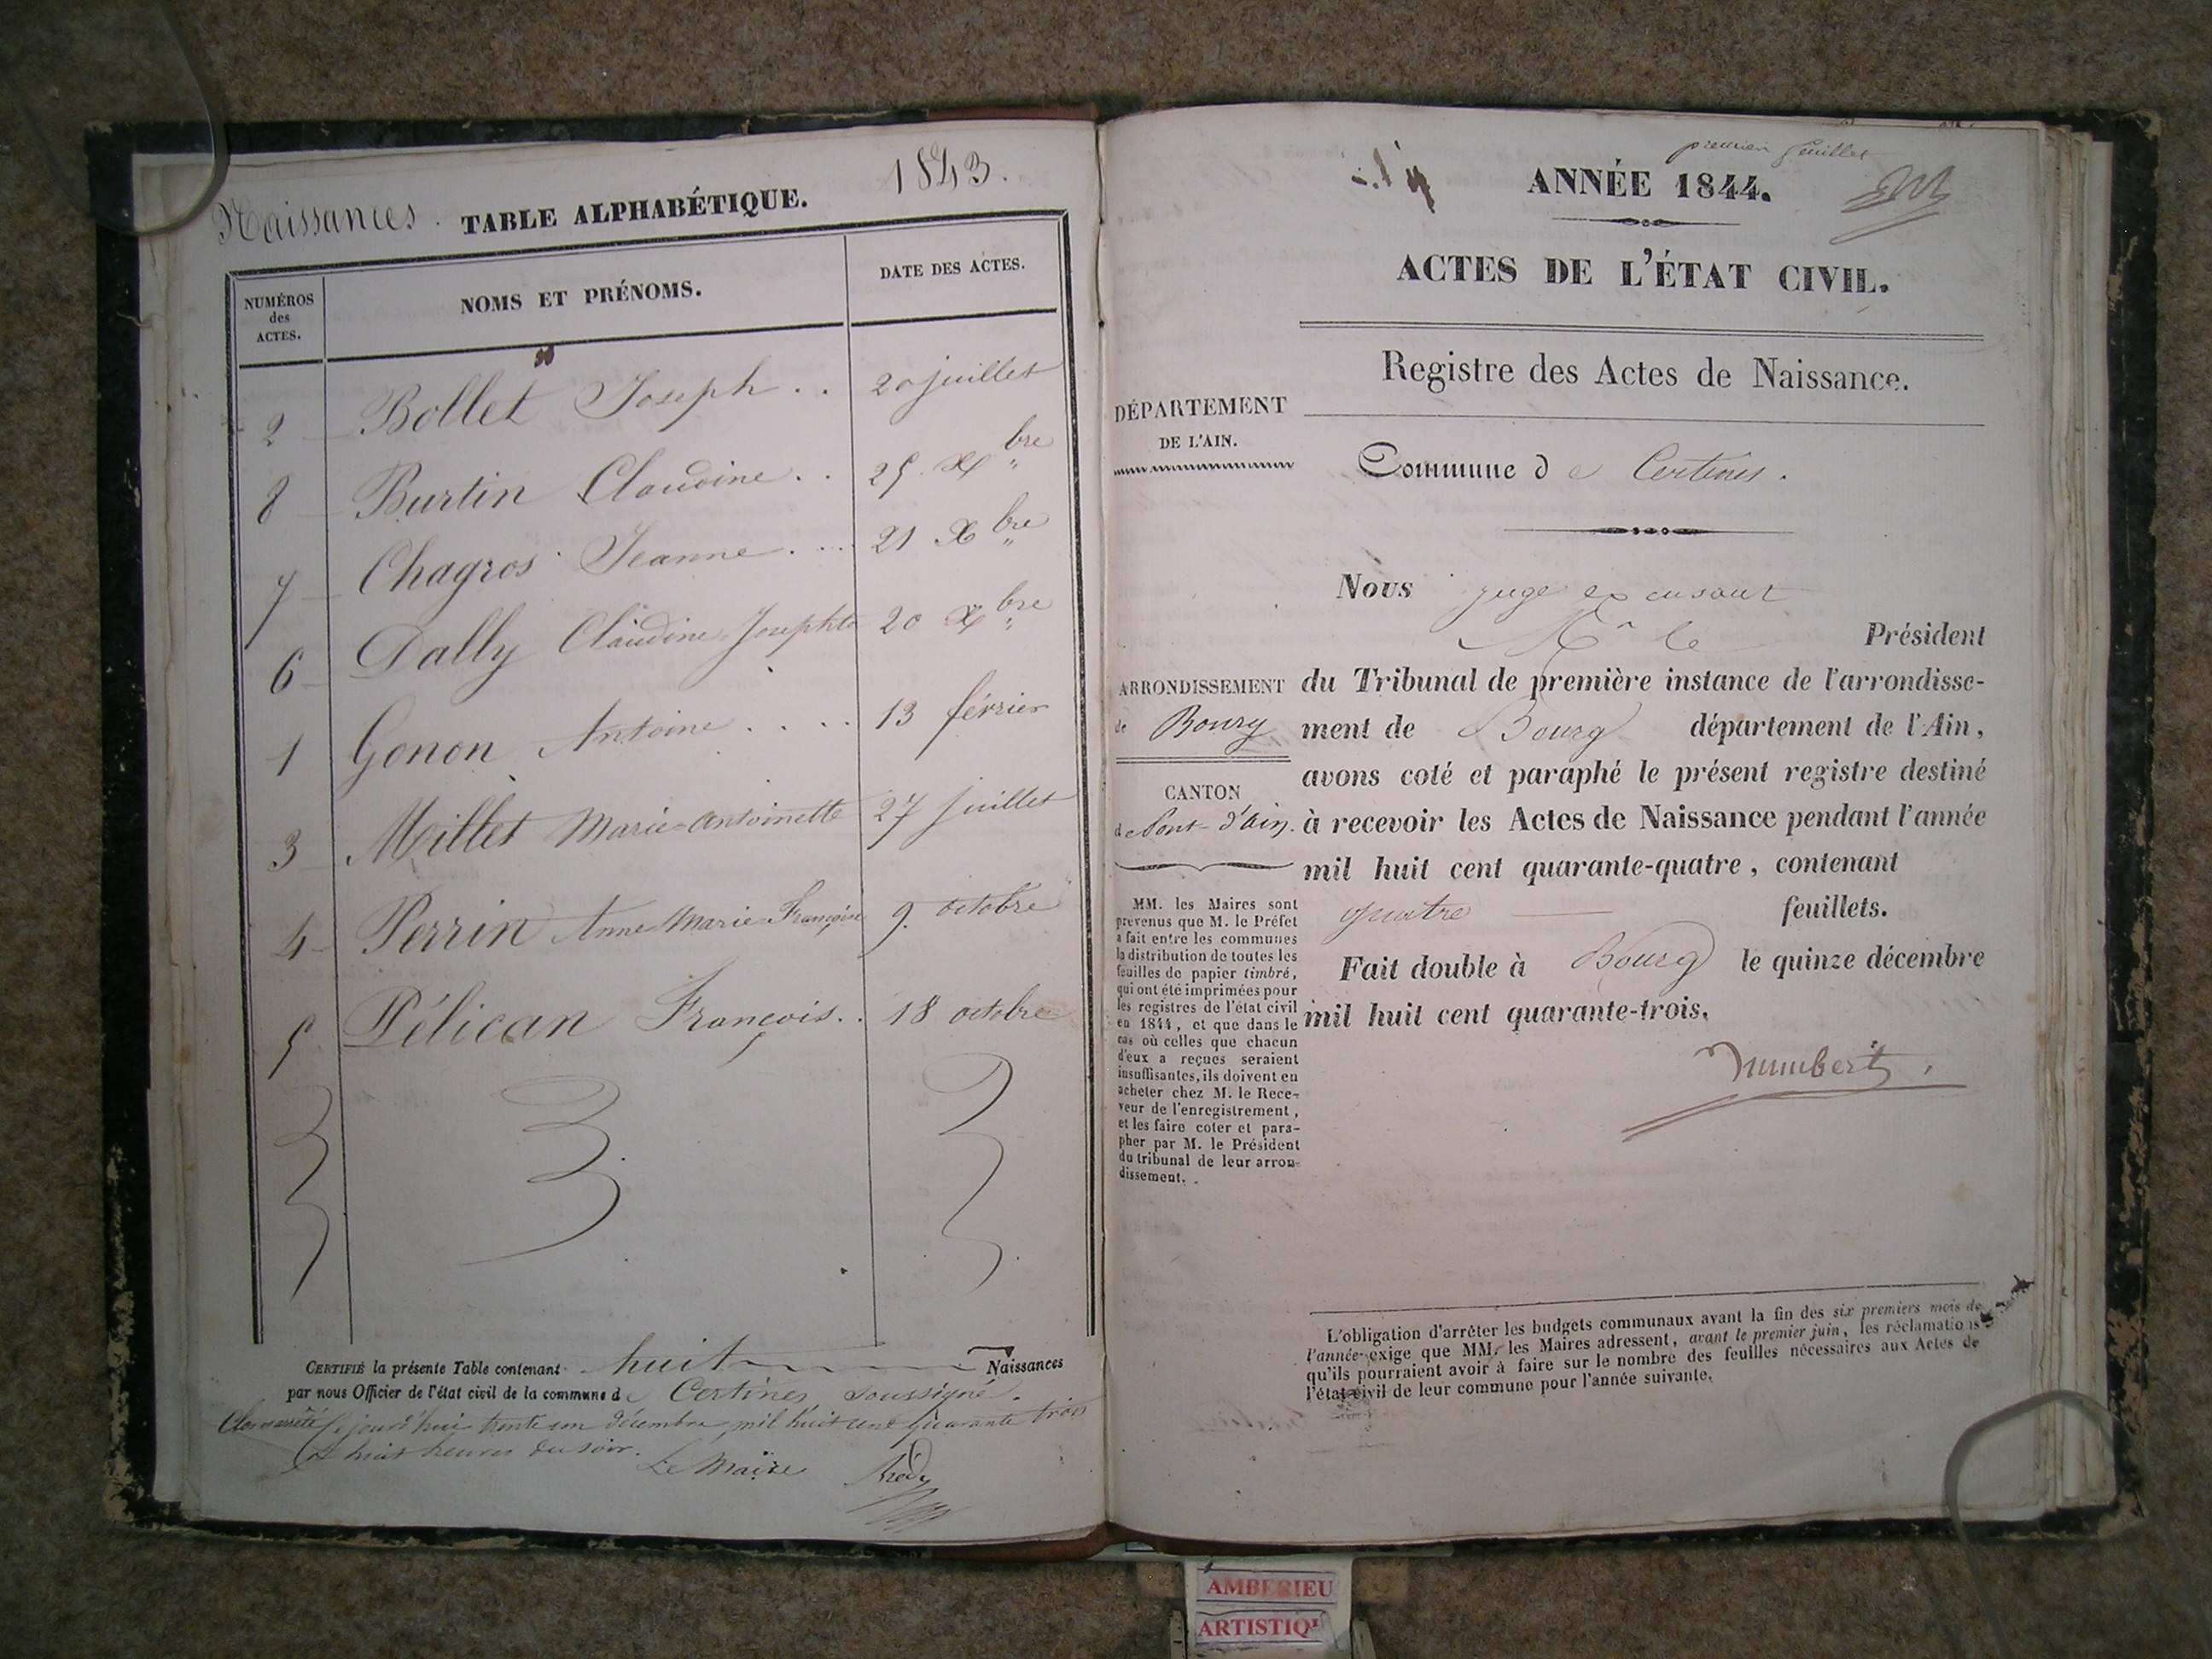 Naissances. TABLE ALPHABÉTIQUE. 1843.
NUMÉROS des ACTES. NOMS ET PRÉNOMS. DATE DES ACTES.
2 Bollet Joseph . . 20 juillet
8 Burtin Claudine . . 25 Xbre
7 Chagros Jeanne . . . 21 Xbre
6 Dally Claudine Josephte 20 Xbre
1 Gonon Antoine . . . . 13 février
3 Millet Marie-Antoinette 27 juillet
4 Perrin Anne Marie Françoise 9. octobre
5 Pélican François . . 18 octobre
CERTIFIÉ la présente Table contenant huit Naissances
par nous Officier de l'état civil de la commune de Certines soussigné.
Clos arrêté ce jourd'hui trente un décembre mil huit cent quarante trois
à huit heures du soir.
Le Maire
premier feuillet
ANNÉE 1844.
ACTES DE L'ÉTAT CIVIL.
Registre des Actes de Naissance.
DÉPARTEMENT
DE L'AIN.
Commune de Certines.
ARRONDISSEMENT
de Bourg
CANTON
de Pont-d'Ain.
MM. les Maires sont
prévenus que M. le Préfet
a fait entre les communes
la distribution de toutes les
feuilles de papier timbré,
qui ont été imprimées pour
les registres de l'état civil
en 1844, et que dans le
cas où celles que chacun
d'eux a reçues seraient
insuffisantes, ils doivent en
acheter chez M. le Rece-
veur de l'enregistrement,
et les faire coter et para-
pher par M. le Président
du tribunal de leur arron-
dissement.
Nous juge excusant
Mr le Président
du Tribunal de première instance de l'arrondisse-
ment de Bourg département de l'Ain,
avons coté et paraphé le présent registre destiné
à recevoir les Actes de Naissance pendant l'année
mil huit cent quarante-quatre, contenant
quatre feuillets.
Fait double à Bourg le quinze décembre
mil huit cent quarante-trois.
humbert
L'obligation d'arrêter les budgets communaux avant la fin des six premiers mois de
l'année exige que MM. les Maires adressent, avant le premier juin, les réclamations
qu'ils pourraient avoir à faire sur le nombre des feuilles nécessaires aux Actes de
l'état civil de leur commune pour l'année suivante.
AMBERIEU
ARTISTIQU